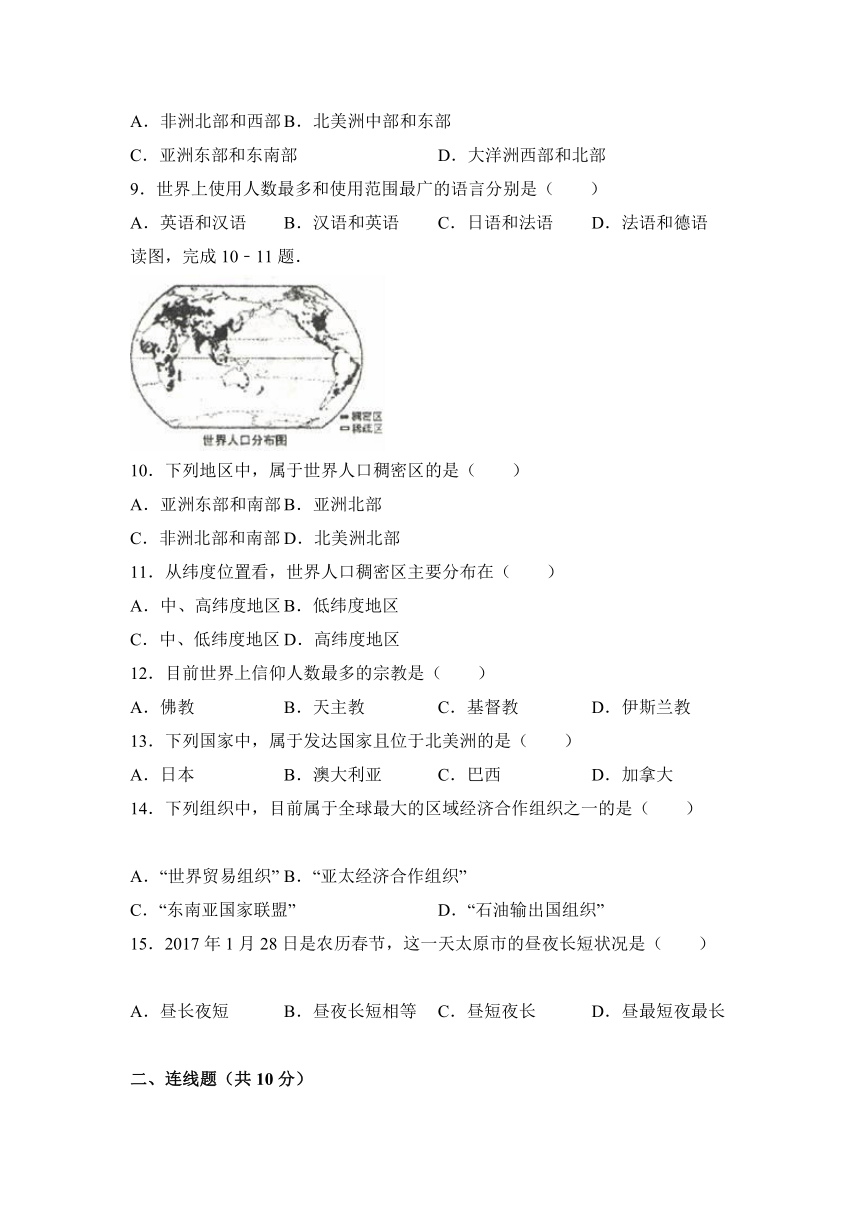 A．非洲北部和西部 B．北美洲中部和东部
C．亚洲东部和东南部 D．大洋洲西部和北部
9．世界上使用人数最多和使用范围最广的语言分别是（　　）
A．英语和汉语 B．汉语和英语 C．日语和法语 D．法语和德语
读图，完成 10﹣11 题．
稠密区
稀疏区
世界人口分布图
10．下列地区中，属于世界人口稠密区的是（　　）
A．亚洲东部和南部 B．亚洲北部
C．非洲北部和南部 D．北美洲北部
11．从纬度位置看，世界人口稠密区主要分布在（　　）
A．中、高纬度地区 B．低纬度地区
C．中、低纬度地区 D．高纬度地区
12．目前世界上信仰人数最多的宗教是（　　）
A．佛教 B．天主教 C．基督教 D．伊斯兰教
13．下列国家中，属于发达国家且位于北美洲的是（　　）
A．日本 B．澳大利亚 C．巴西 D．加拿大
14．下列组织中，目前属于全球最大的区域经济合作组织之一的是（　　）
A．“世界贸易组织” B．“亚太经济合作组织”
C．“东南亚国家联盟” D．“石油输出国组织”
15．2017 年 1 月 28 日是农历春节，这一天太原市的昼夜长短状况是（　　）
A．昼长夜短 B．昼夜长短相等 C．昼短夜长 D．昼最短夜最长
二、连线题（共 10 分）